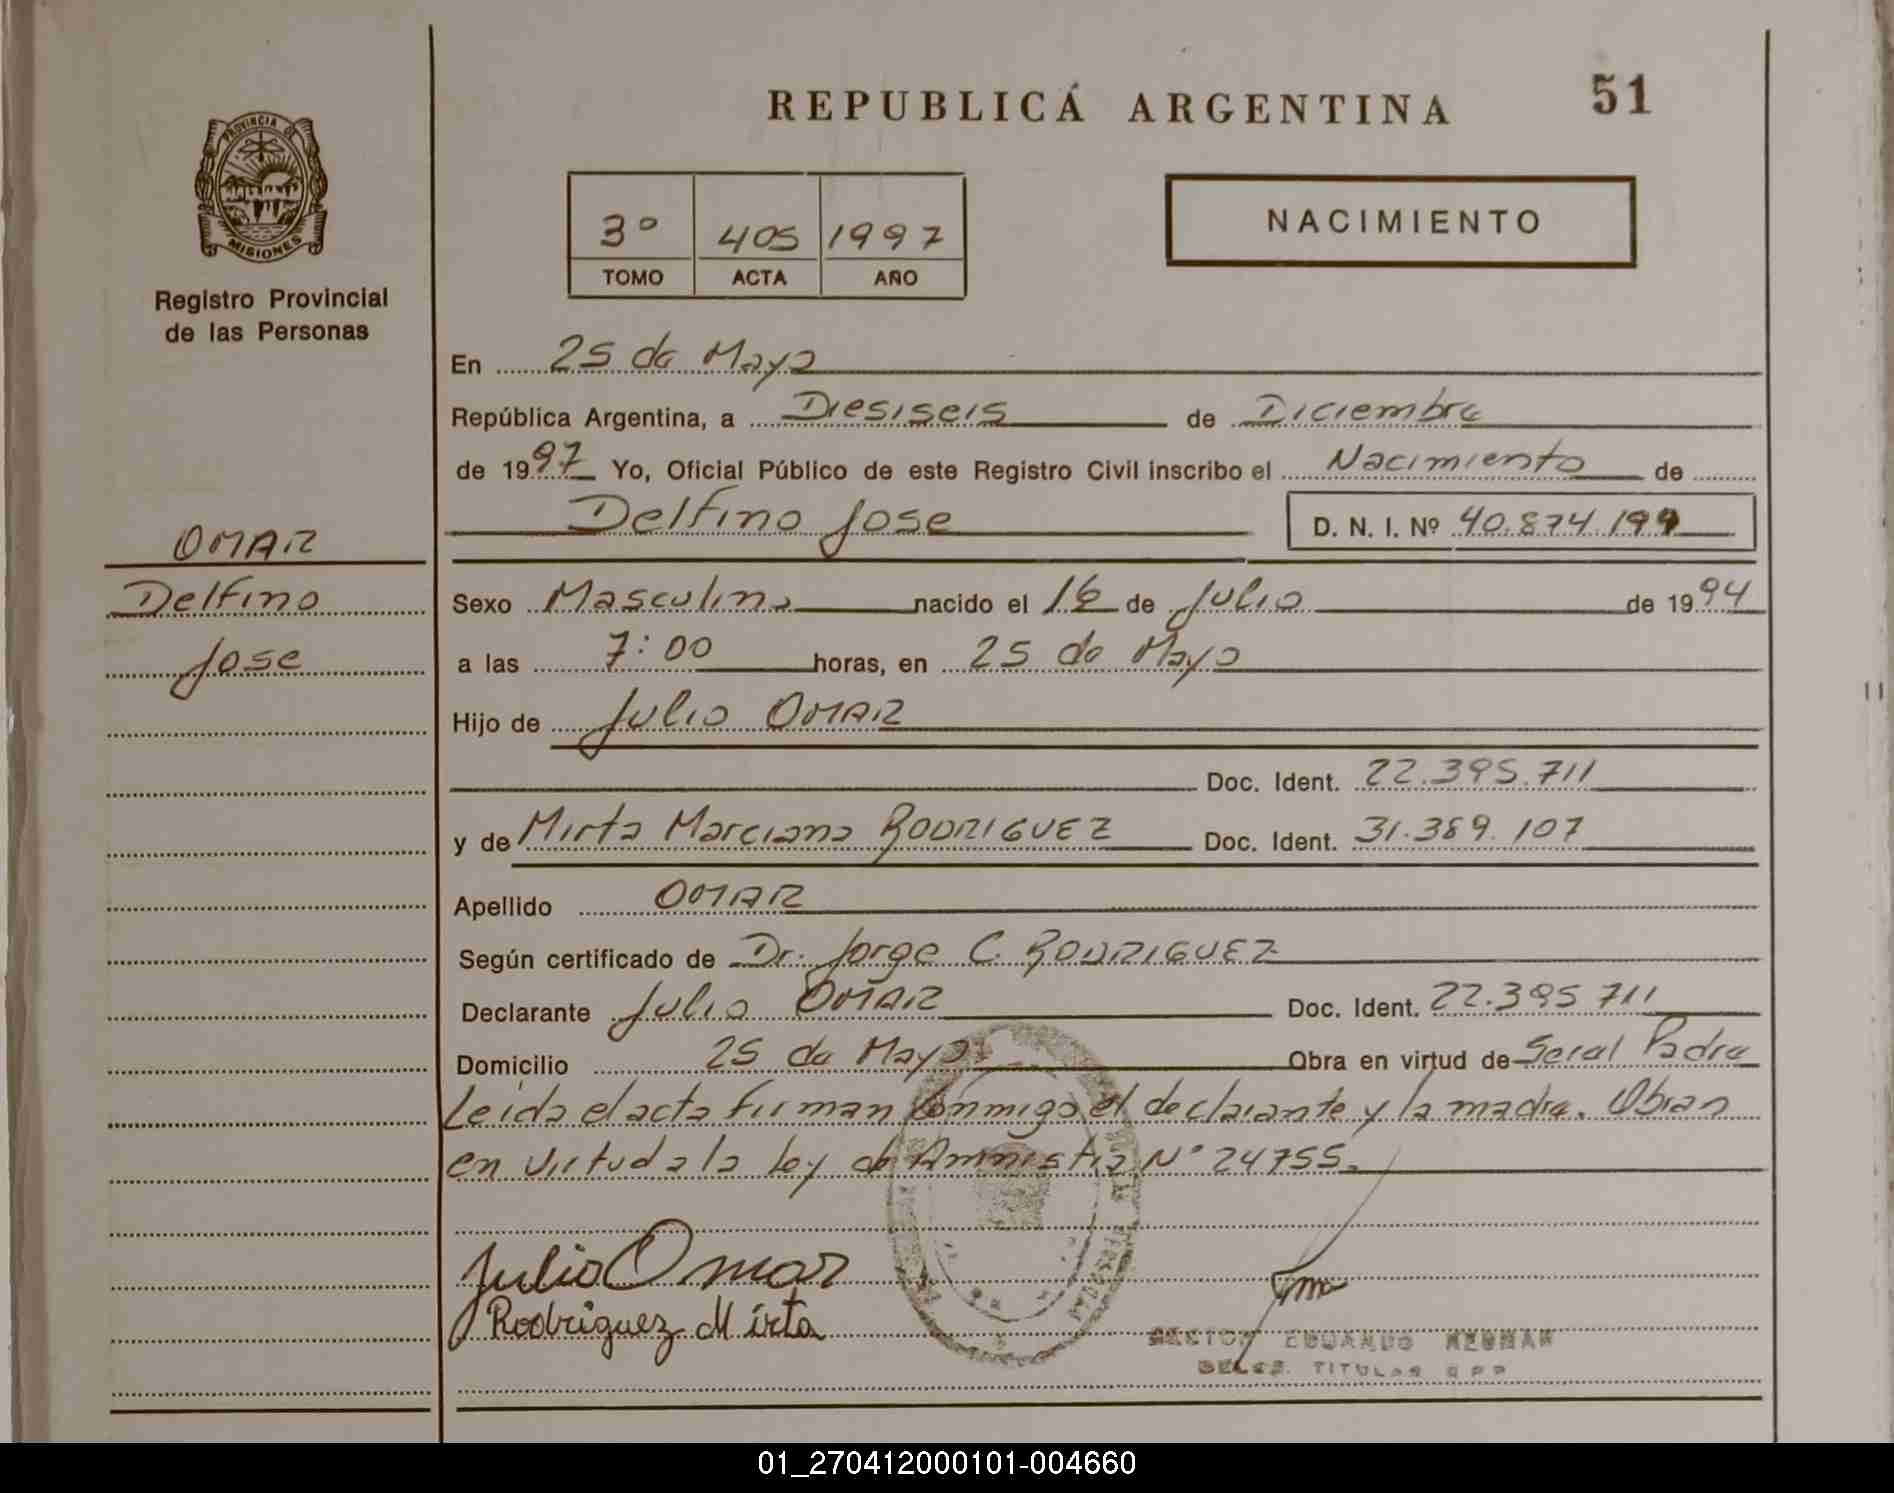 REPUBLICA ARGENTINA
51
PROVINCIA DE
MISIONES
Registro Provincial
de las Personas
3º 405 1997
TOMO ACTA AÑO
NACIMIENTO
En 25 de Mayo
República Argentina, a Diesiseis de Diciembre
de 1997 Yo, Oficial Público de este Registro Civil inscribo el Nacimiento de
Delfino Jose D. N. I. Nº 40.874.199
OMAR
Delfino
Jose
Sexo Masculino nacido el 16 de Julio de 1994
a las 7:00 horas, en 25 de Mayo
Hijo de Julio OMAR
Doc. Ident. 22.395.711
y de Mirta Marciana RODRIGUEZ Doc. Ident. 31.389.107
Apellido OMAR
Según certificado de Dr. Jorge C. RODRIGUEZ
Declarante Julio OMAR Doc. Ident. 22.395 711
Domicilio 25 de Mayo Obra en virtud de Padre
Leida el acta firman Conmigo el declarante y la madre. Obran
en virtud a la Ley de Amnistia Nº 24755.
Julio Omar
Rodriguez Mirta
EDUARDO
TITULAR
01_270412000101-004660